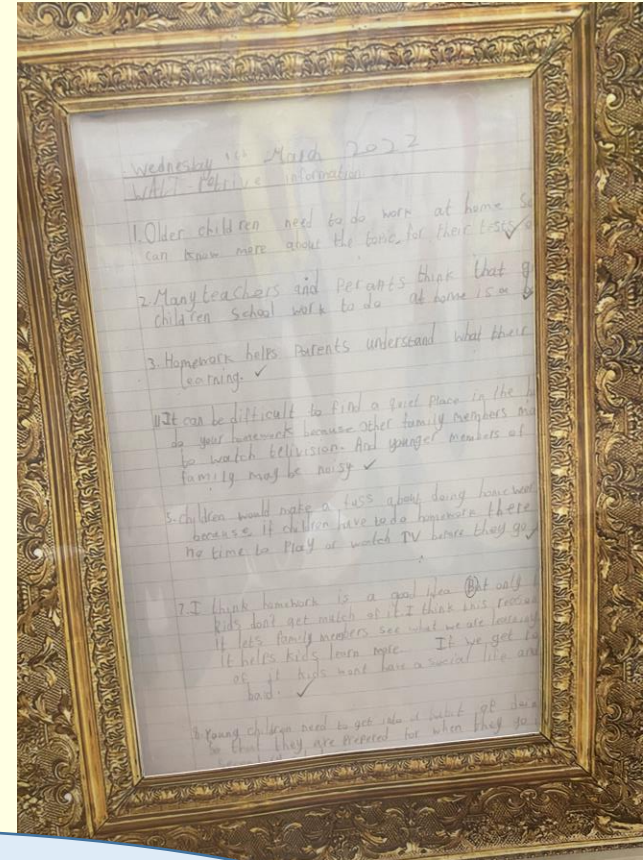 Wednesday March 2022
WALT retrive information
1. Older children need to do work at home So
can know more about the for their tests
2. Many teachers and Perants think that
children School work to do at home is a
3. Homework helps Parents understand what their
Learning.
It can be difficult to find a quiet Place in the
do your homework because other family members
to watch telivision. And younger members of
family may be noisy
5. children would make a fuss about doing
because if children have to do homework there
no time to Play or watch TV before they go
7. I think homework is a good idea But only
kids don't get match of it. I think this
It lets family members see what we are learning
It helps kids learn more. If we get
of it kids wont have a social life and
bad.
8. Young children need to get into a habit of
so that they are Prepared for when they go